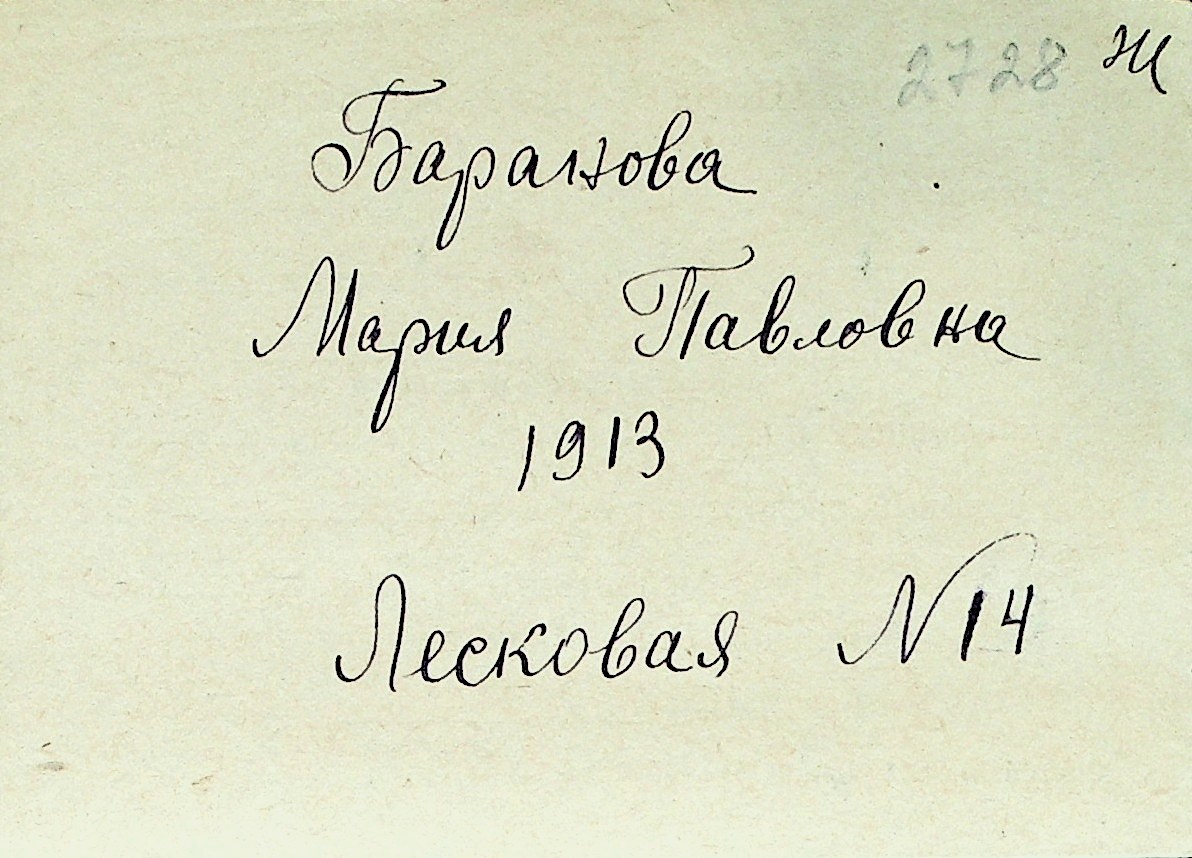 2728 Ж
Баранова
Мария Павловна
1913
Лесковая N 14